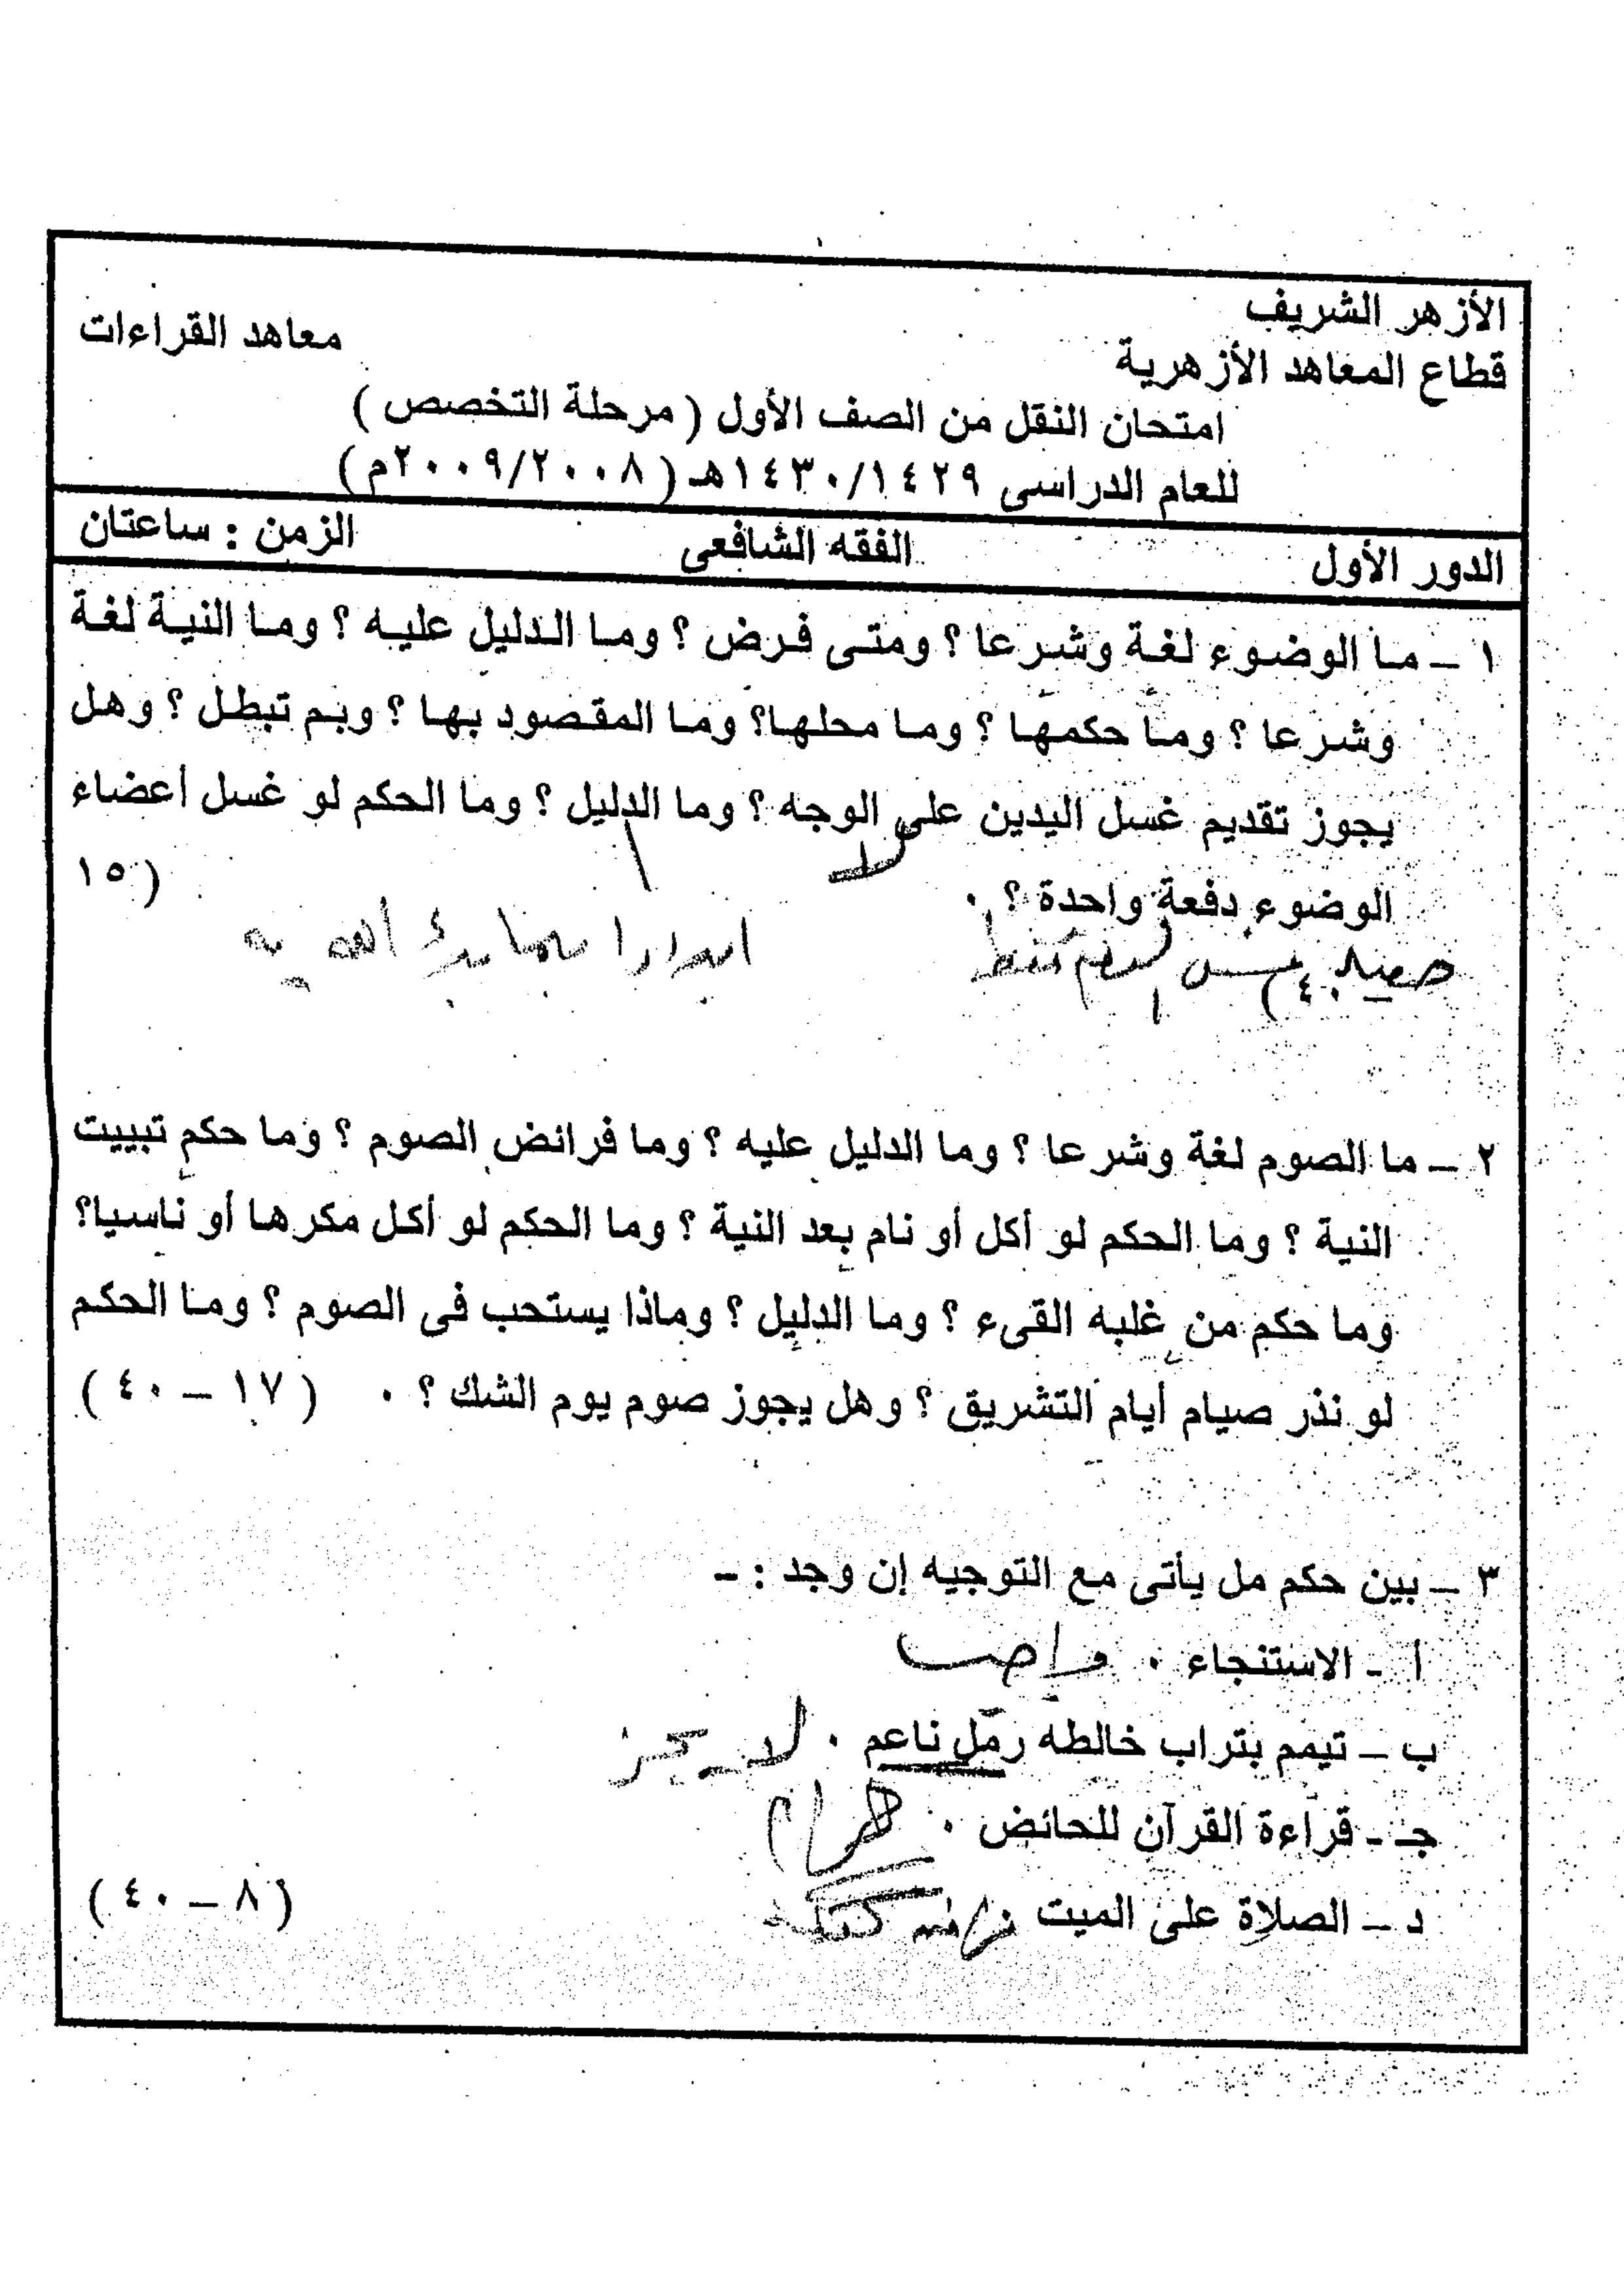 الأزهر الشريف
معاهد القراءات
قطاع المعاهد الأزهرية
امتحان النقل من الصف الأول ( مرحلة التخصص )
للعام الدراسى ١٤٣٠/١٤٢٩هـ ( ٢٠٠٩/٢٠٠٨م )
الدور الأول الفقه الشافعى الزمن : ساعتان
١ – ما الوضوء لغة وشرعا ؟ ومتى فرض ؟ وما الدليل عليه ؟ وما النية لغة
وشرعا ؟ وما حكمها ؟ وما محلها؟ وما المقصود بها ؟ وبم تبطل ؟ وهل
يجوز تقديم غسل اليدين على الوجه ؟ وما الدليل ؟ وما الحكم لو غسل أعضاء
لا
الوضوء دفعة واحدة ؟ . ( ١٥
٤٠ )
ابدءوا بما بدأ الله به
٢ – ما الصوم لغة وشرعا ؟ وما الدليل عليه ؟ وما فرائض الصوم ؟ وما حكم تبييت
النية ؟ وما الحكم لو أكل أو نام بعد النية ؟ وما الحكم لو أكل مكرها أو ناسيا؟
وما حكم من غلبه القىء ؟ وما الدليل ؟ وماذا يستحب فى الصوم ؟ وما الحكم
لو نذر صيام أيام التشريق ؟ وهل يجوز صوم يوم الشك ؟ . ( ١٧ – ٤٠ )
٣ – بين حكم مل يأتى مع التوجيه إن وجد : –
أ – الاستنجاء . واجب
ب – تيمم بتراب خالطه رمل ناعم . لا يجز
جـ – قراءة القرآن للحائض . حرام
د – الصلاة على الميت فرض كفاية ( ٨ – ٤٠ )